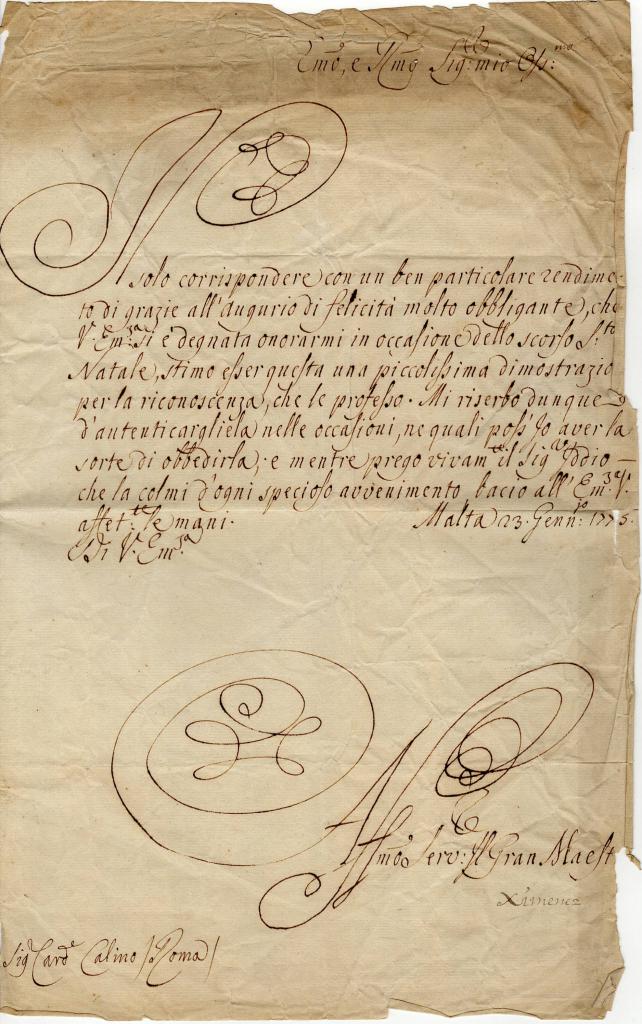 Em̃o, e Rm̃o Sig: mio Oss:mo
Il solo corrispondere con un ben particolare rendime-
to di grazie all'augurio di felicità molto obbligante, che
V. Em:za si è degnata onorarmi in occasione dello scorso S.to
Natale, stimo esser questa una piccolissima dimostrazio
per la riconoscenza, che le professo. Mi riserbo dunque
d'autenticargliela nelle occasioni, ne quali poss' Io aver la
sorte di obbedirla; e mentre prego vivam.te il Sig.r Iddio
che la colmi d'ogni specioso avvenimento, bacio all' Em.za V.
affet:te le mani. Malta 23. Genn:ro 1775.
Di V. Em:za
Affm̃o Serv: Il Gran Maest
Ximenez
Sig.r Card.e Calino /Roma/